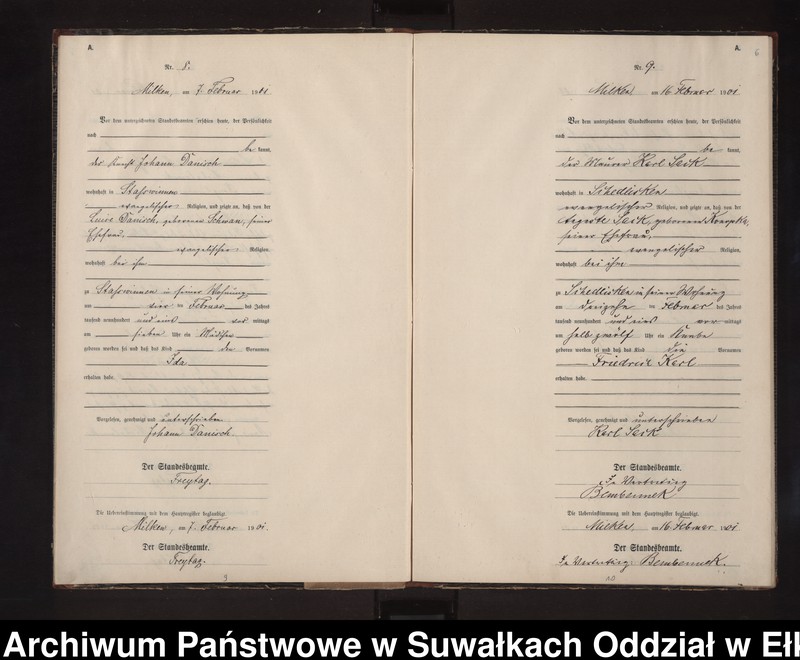 A.
Nr. 8.
Milken, am 7. Februar 1901
Vor dem unterzeichneten Standesbeamten erschien heute, der Persönlichkeit
nach
be kannt,
der Johann Danisch
wohnhaft in Staswinnen
evangelischer Religion, und zeigte an, daß von der
Luise Danisch, geborenen Schwan, seiner
Ehefrau,
evangelischer Religion,
wohnhaft bei ihm
zu Staswinnen in seiner Wohnung
am vier ten Februar des Jahres
tausend neunhundert und eins vor mittags
um sieben Uhr ein Mädchen
geboren worden sei und daß das Kind den Vornamen
Ida
erhalten habe.
Vorgelesen, genehmigt und unterschrieben
Johann Danisch.
Der Standesbeamte.
Freytag.
Die Uebereinstimmung mit dem Hauptregister beglaubigt.
Milken, am 7. Februar 1901.
Der Standesbeamte.
Freytag.
A.
6
Nr. 9.
Milken am 16 Februar 1901
Vor dem unterzeichneten Standesbeamten erschien heute, der Persönlichkeit
nach
be kannt,
der Maurer Karl Seik
wohnhaft in
evangelischer Religion, und zeigte an, daß von der
Auguste Seik, geborenen
seiner Ehefrau,
evangelischer Religion,
wohnhaft bei ihm
zu in seiner Wohnung
am dreizehn ten Februar des Jahres
tausend neunhundert und eins vor mittags
um halb zwölf Uhr ein Knabe
geboren worden sei und daß das Kind die Vornamen
Friedrich Karl
erhalten habe.
Vorgelesen, genehmigt und unterschrieben
Karl Seik
Der Standesbeamte.
In Vertretung
Bembennek
Die Uebereinstimmung mit dem Hauptregister beglaubigt.
Milken, am 16 Februar 1901
Der Standesbeamte.
In Vertretung: Bembennek.
Archiwum Państwowe w Suwałkach Oddział w Ełk